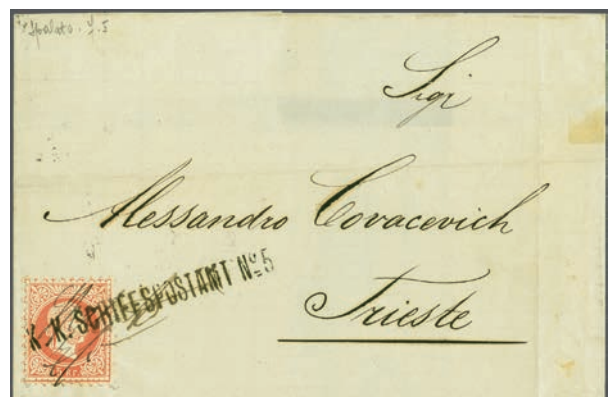 Spalato. 4.5
Sigr
Alessandro Covacevich
K. K. SCHIFFSPOSTAMT Nº 5
Trieste
kr.